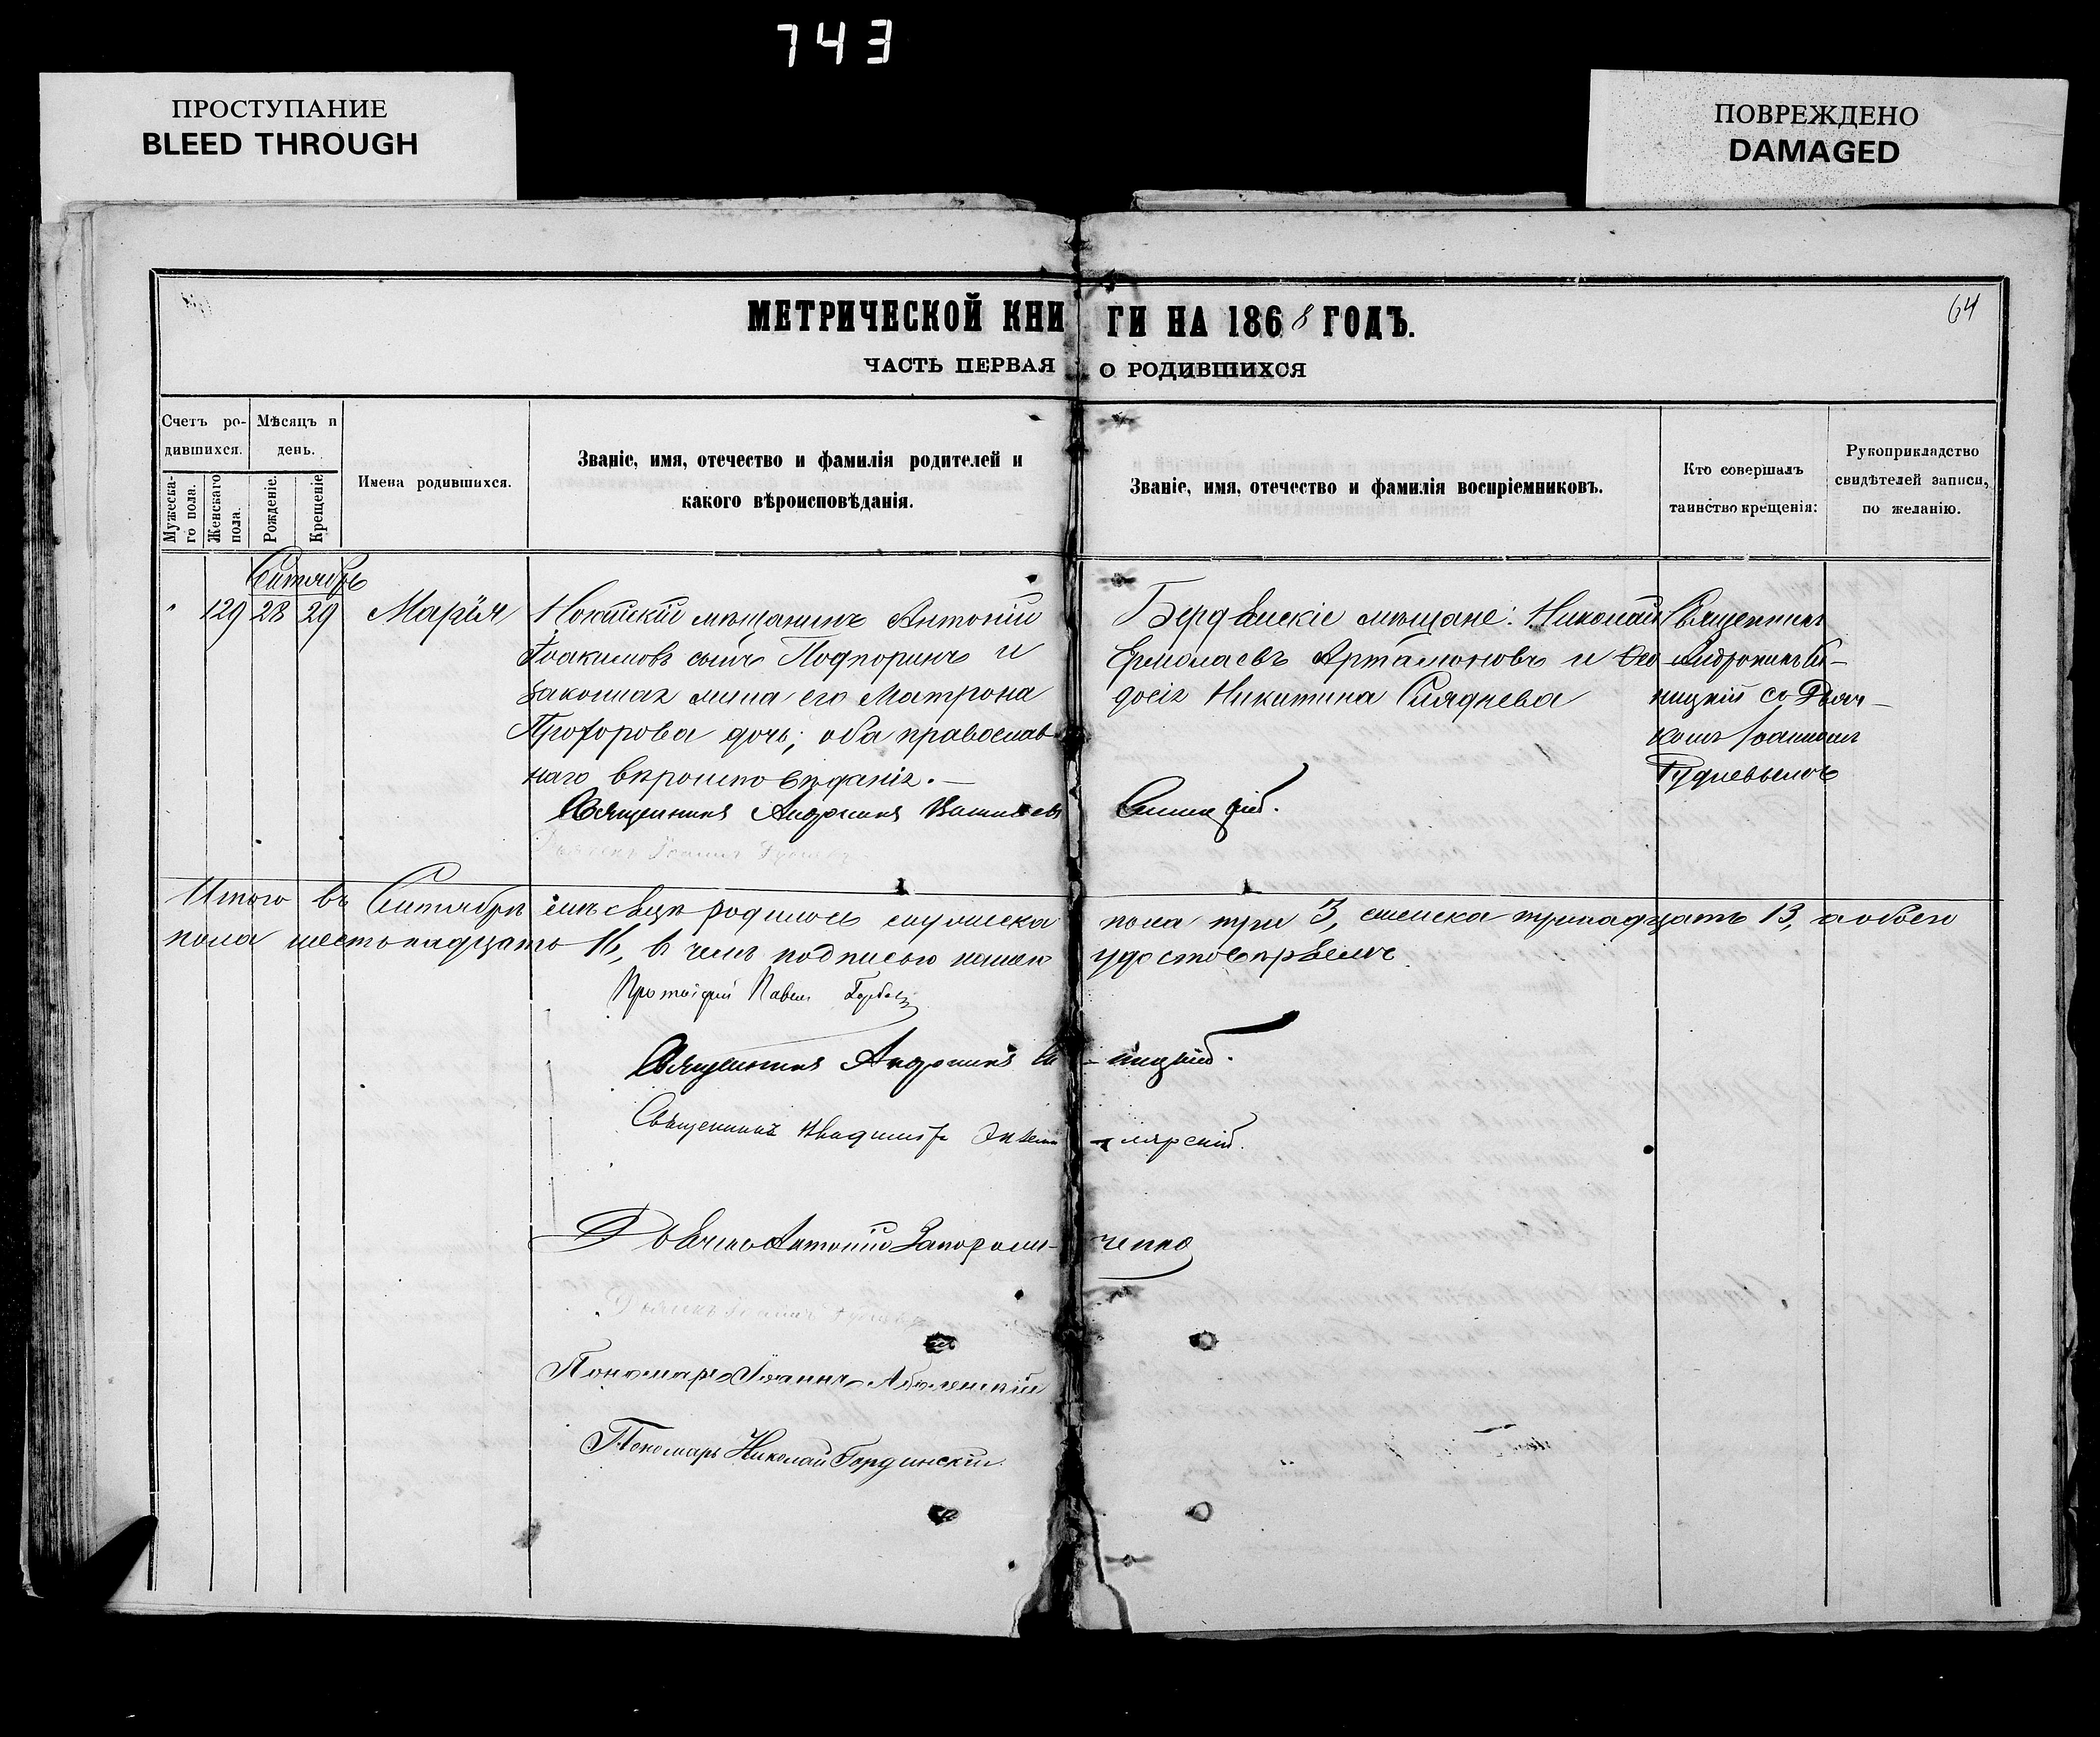 743
ПРОСТУПАНИЕ
BLEED THROUGH
ПОВРЕЖДЕНО
DAMAGED
МЕТРИЧЕСКОЙ КНИГИ НА 1868 ГОДЪ.
64
ЧАСТЬ ПЕРВАЯ О РОДИВШИХСЯ
Счетъ ро-
дившихся.
Мужеска-
го пола.
Женскаго
пола.
Мѣсяцъ и
день.
Рожденіе.
Крещеніе
Имена родившихся.
Званіе, имя, отечество и фамилія родителей и
какого вѣроисповѣданія.
Званіе, имя, отечество и фамилія воспріемниковъ.
Кто совершалъ
таинство крещенія:
Рукоприкладство
свидѣтелей записи,
по желанію.
Сентябрь
" 129 28 29 Марія
мѣщанинъ Антоній
Іоакимовъ сынъ Подпоринъ и
законная жена его Матрона
Прохорова дочь; оба православ-
наго вѣроисповѣданія.
Священникъ Андроникъ Синицкій.
Бердянскіе мѣщане: Николай
Ермолаевъ Артамоновъ и Ѳео-
досія Никитина
Священникъ
Андроникъ Си-
ницкій съ Дьяч-
комъ Іоанномъ
Итого въ Сентябрѣ мѣсяцѣ родилось мужеска пола три 3, женска тринадцать 13, а обоего
пола шестьнадцать 16, въ чемъ подписью нашею удостовѣряемъ
Протоіерей Павелъ
Священникъ Андроникъ Синицкій.
Священникъ Владиміръ
Дьячекъ Антоній Запорожченко
Дьячекъ Іоаннъ
Пономарь Іоаннъ
Пономарь Николай Гординскій